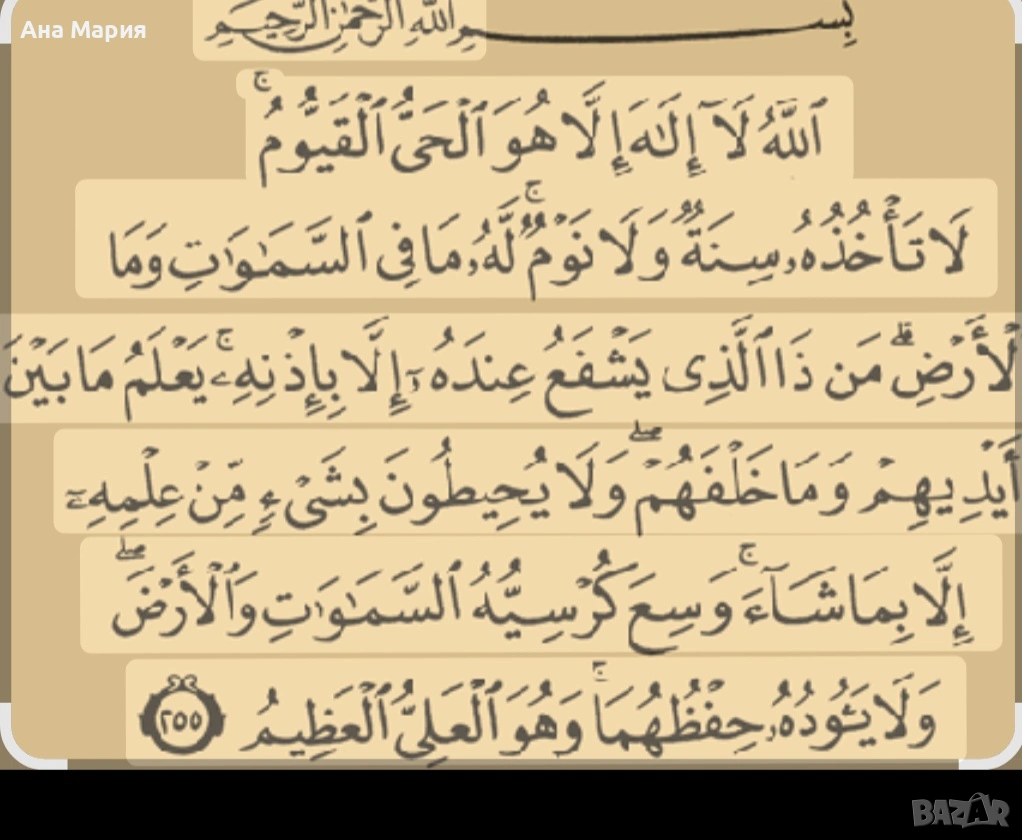 Ана Мария
بِسْمِ ٱللَّهِ ٱلرَّحْمَٰنِ ٱلرَّحِيمِ
ٱللَّهُ لَآ إِلَٰهَ إِلَّا هُوَ ٱلْحَىُّ ٱلْقَيُّومُ ۚ
لَا تَأْخُذُهُۥ سِنَةٌ وَلَا نَوْمٌ ۚ لَّهُۥ مَا فِى ٱلسَّمَٰوَٰتِ وَمَا
لْأَرْضِ ۗ مَن ذَا ٱلَّذِى يَشْفَعُ عِندَهُۥٓ إِلَّا بِإِذْنِهِۦ ۚ يَعْلَمُ مَا بَيْنَ
أَيْدِيهِمْ وَمَا خَلْفَهُمْ ۖ وَلَا يُحِيطُونَ بِشَىْءٍ مِّنْ عِلْمِهِۦٓ
إِلَّا بِمَا شَآءَ ۚ وَسِعَ كُرْسِيُّهُ ٱلسَّمَٰوَٰتِ وَٱلْأَرْضَ ۖ
وَلَا يَـُٔودُهُۥ حِفْظُهُمَا ۚ وَهُوَ ٱلْعَلِىُّ ٱلْعَظِيمُ ٢٥٥
BAZAR